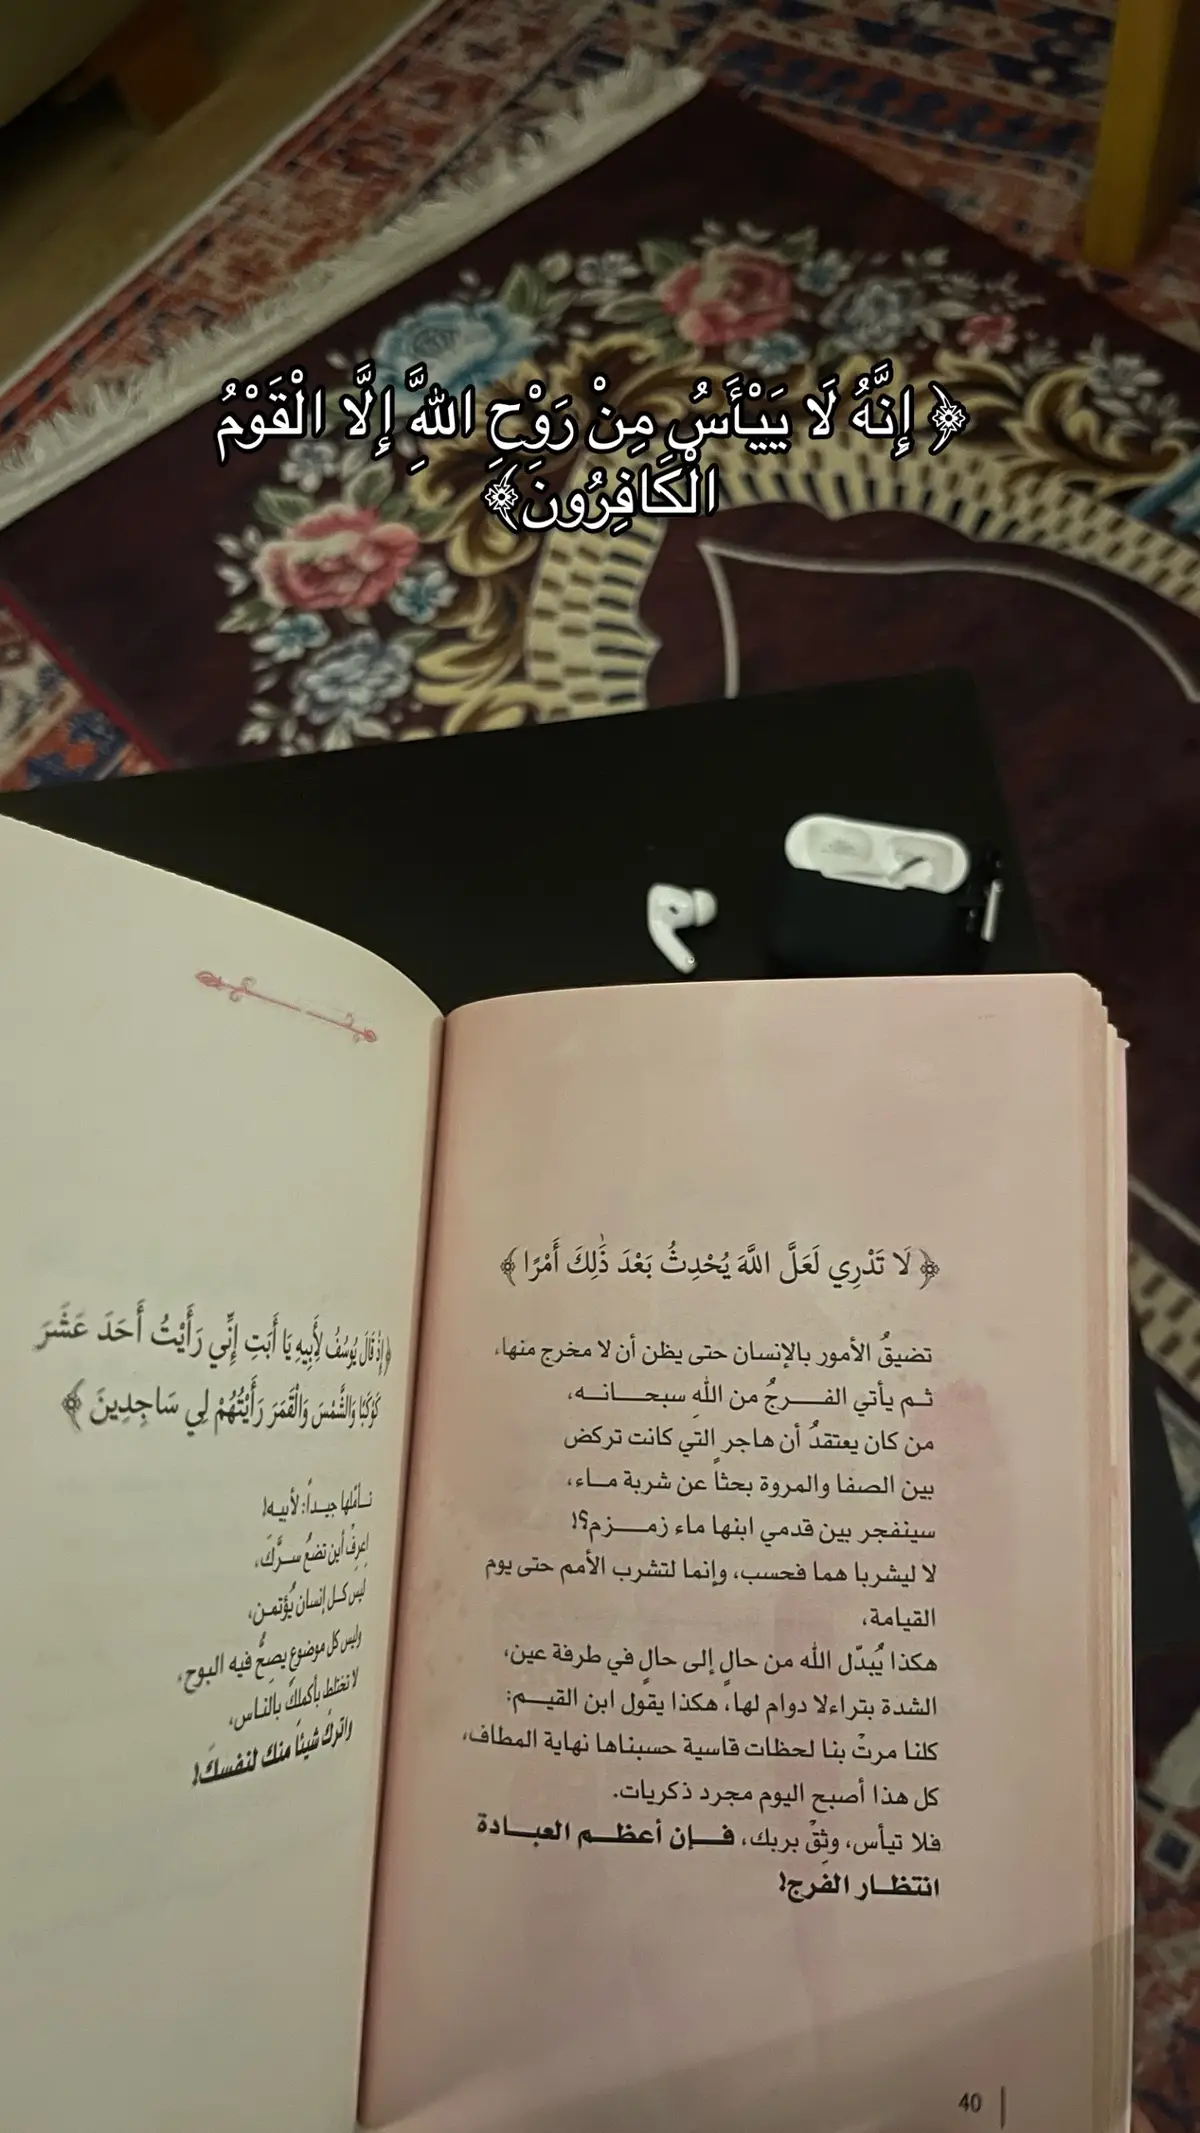 ﴿ إِنَّهُ لَا يَيْأَسُ مِنْ رَوْحِ اللَّهِ إِلَّا الْقَوْمُ
الْكَافِرُونَ﴾
﴿ لَا تَدْرِي لَعَلَّ اللَّهَ يُحْدِثُ بَعْدَ ذَٰلِكَ أَمْرًا ﴾
تضيقُ الأمور بالإنسان حتى يظن أن لا مخرج منها،
ثـم يأتي الفـــرجُ من اللهِ سبحـــانــه،
من كان يعتقدُ أن هاجر التي كانت تركض
بين الصفا والمروة بحثاً عن شربة مـاء،
سينفجر بين قدمي ابنها ماء زمـــزم؟!
لا ليشربا هما فحسب، وإنما لتشرب الأمم حتى يوم
القيامة،
هكذا يُبدّل الله من حالٍ إلى حالٍ في طرفة عين،
الشدة بتراءلا دوام لها، هكذا يقول ابن القيـم:
كلنا مرتْ بنا لحظات قاسية حسبناها نهاية المطاف،
كل هذا أصبح اليوم مجرد ذكريات.
فلا تيأس، وثِقْ بربك، فــإن أعظــم العبــادة
انتظـار الفَرج!
40
﴿ إِذْ قَالَ يُوسُفُ لِأَبِيهِ يَا أَبَتِ إِنِّي رَأَيْتُ أَحَدَ عَشَرَ
كَوْكَبًا وَالشَّمْسَ وَالْقَمَرَ رَأَيْتُهُمْ لِي سَاجِدِينَ ﴾
تـأمّلها جيـداً: لأبيـه!
اِعرفْ أين تضعُ ســرَّكَ،
ليس كـل إنسان يُؤتمـن،
وليس كل موضوعٍ يصحُّ فيه البوح،
لا تختلط بأكملكَ بالناس،
واتركْ شيئاً منك لنفسكَ!